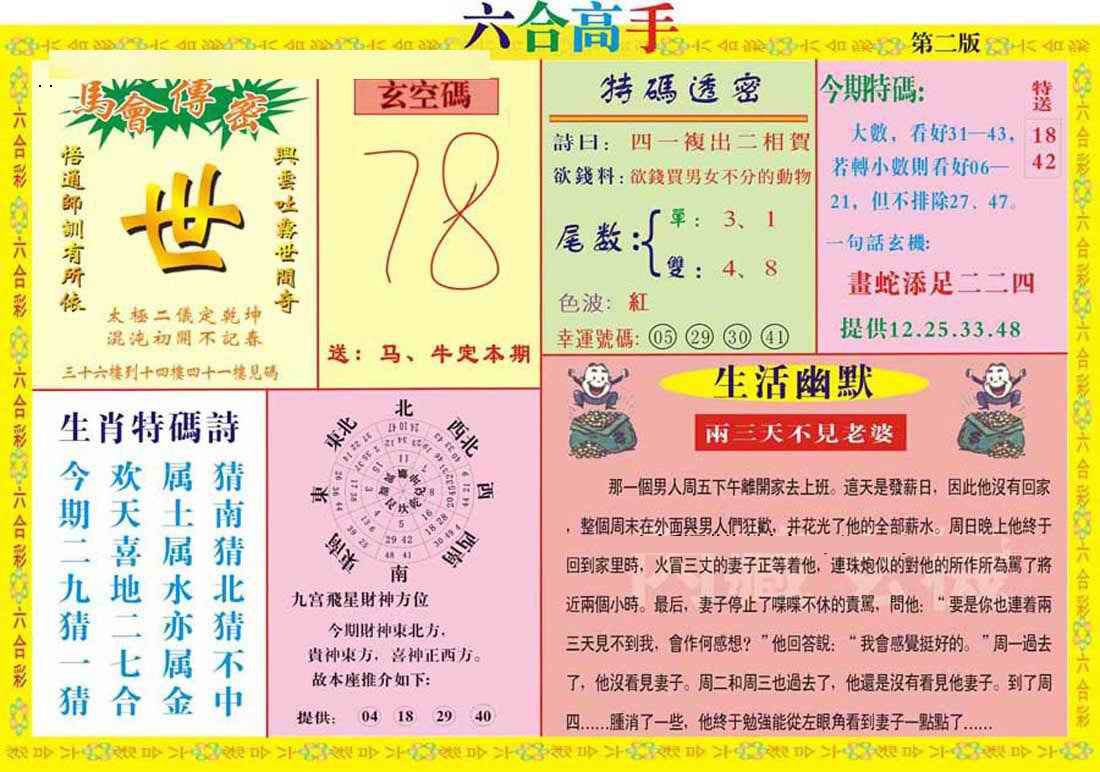 六合高手
第二版
馬會傳密
悟通師訓有所依
世
興雲吐霧世間奇
太極二儀定乾坤
混沌初開不記春
三十六樓到十四樓四十一樓見碼
玄空碼
78
送：马、牛定本期
特碼透密
詩曰：四一複出二相賀
欲錢料：欲錢買男女不分的動物
尾数：
單：3、1
雙：4、8
色波：紅
幸運號碼：05 29 30 41
今期特碼：
特送
18
42
大數，看好31—43，
若轉小數則看好06—
21，但不排除27、47。
一句話玄機：
畫蛇添足二二四
提供12.25.33.48
生肖特碼詩
今期二九猜一猜
欢天喜地二七合
属土属水亦属金
猜南猜北猜不中
北
東北
西北
東
西
東南
西南
南
九宮飛星財神方位
今期財神東北方，
貴神東方，喜神正西方。
故本座推介如下：
提供：04 18 29 40
生活幽默
兩三天不見老婆
那一個男人周五下午離開家去上班。這天是發薪日，因此他沒有回家
，整個周末在外面與男人們狂歡，并花光了他的全部薪水。周日晚上他終于
回到家里時，火冒三丈的妻子正等着他，連珠炮似的對他的所作所為罵了將
近兩個小時。最后，妻子停止了喋喋不休的責罵，問他：“要是你也連着兩
三天見不到我，會作何感想？”他回答說：“我會感覺挺好的。”周一過去
了，他沒看見妻子。周二和周三也過去了，他還是沒有看見他妻子。到了周
四……腫消了一些，他終于勉強能從左眼角看到妻子一點點了……